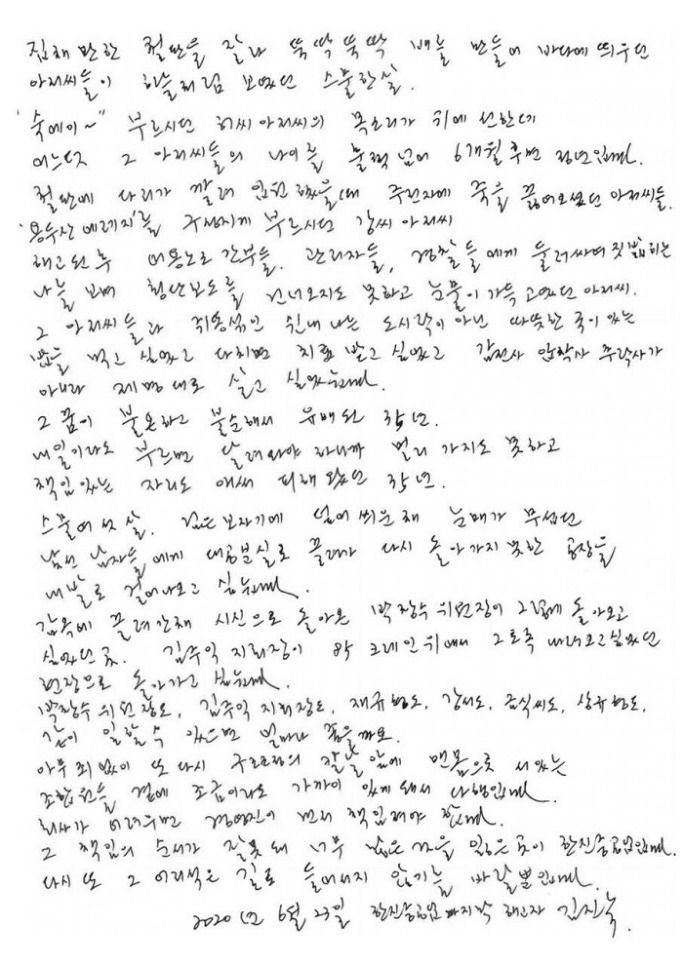 집채만한 철판을 잘라 뚝딱뚝딱 배를 만들어 바다에 띄우던
아저씨들이 하늘처럼 보였던 스물한살.
"숙에이~" 부르시던 허씨 아저씨의 목소리가 귀에 선한데
어느덧 그 아저씨들의 나이를 훌쩍 넘어 6개월 후면 정년입니다.
철판에 다리가 깔려 입원했을 때 주전자에 죽을 끓여오셨던 아저씨들.
'용두산 에레지'를 구성지게 부르시던 강씨 아저씨
해고된 후 어용노조 간부들, 관리자들, 경찰들에게 둘러싸여 짓밟히는
나를 보며 횡단보도를 건너오지도 못하고 눈물이 가득 고였던 아저씨.
그 아저씨들과 쥐똥섞인 쉰내나는 도시락이 아닌 따뜻한 국이 있는
밥을 먹고 싶었고 다치면 치료받고 싶었고 감전사 압착사 추락사가
아니라 제명대로 살고 싶었습니다.
그 꿈이 불온하고 불순해서 유배된 35년.
내일이라도 부르면 달려와야 하니까 멀리 가지도 못하고
책임있는 자리도 애써 피해 왔던 35년.
스물여섯살. 넓은보자기에 덮어 씌운채 눈매가 무섭던
낯선 남자들에게 대공분실로 끌려가 다시 돌아가지 못한 공장을
내발로 걸어나오고 싶습니다.
감옥에 끌려간채 시신으로 돌아온 박창수 위원장이 그렇게 돌아오고
싶었던 곳. 김주익 지회장이 85 크레인위에서 그토록 내려오고싶었던
현장으로 돌아가고 싶습니다.
박창수 위원장도, 김주익 지회장도, 재규형도, 강서도, 금식씨도, 상규형도,
같이 일할 수 있으면 얼마나 좋을까요.
아무 죄 없이 또 다시 구조조정의 칼날 앞에 맨몸으로 서있는
조합원들 곁에 조금이라도 가까이 있게 돼서 다행입니다.
회사가 어려우면 경영진이 먼저 책임져야 합니다.
그 책임의 순서가 잘못돼 너무 많은 것을 잃은 곳이 한진중공업입니다.
다시 또 그 어리석은 길로 들어서지 않기를 바랄뿐입니다.
2020년 6월 23일 한진중공업 마지막 해고자 김진숙.